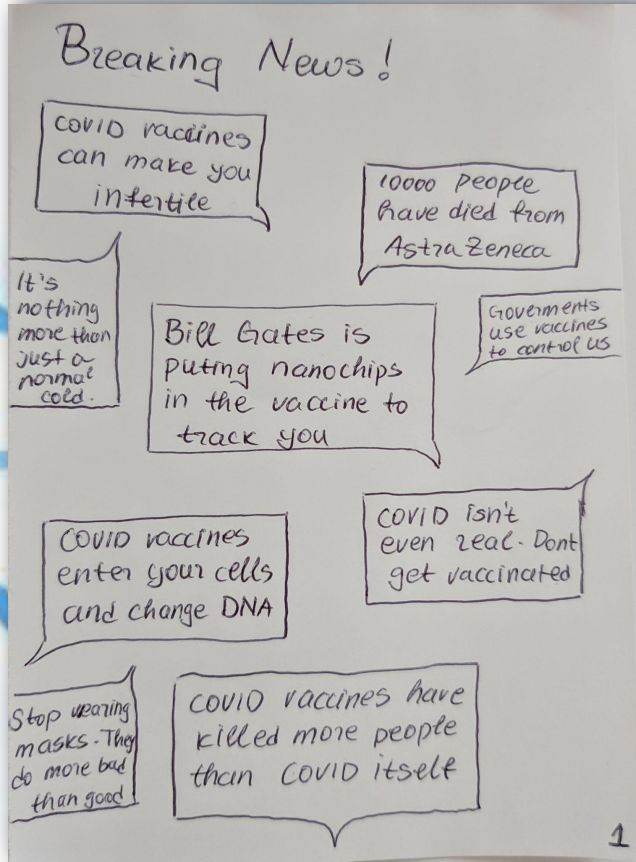 Breaking News!
COVID vaccines
can make you
infertile
10000 people
have died from
AstraZeneca
It's
nothing
more than
just a
normal
cold.
Bill Gates is
puting nanochips
in the vaccine to
track you
Goverments
use vaccines
to control us
COVID isn't
even real. Dont
get vaccinated
COVID vaccines
enter your cells
and change DNA
Stop wearing
masks. They
do more bad
than good
COVID vaccines have
killed more people
than COVID itself
1